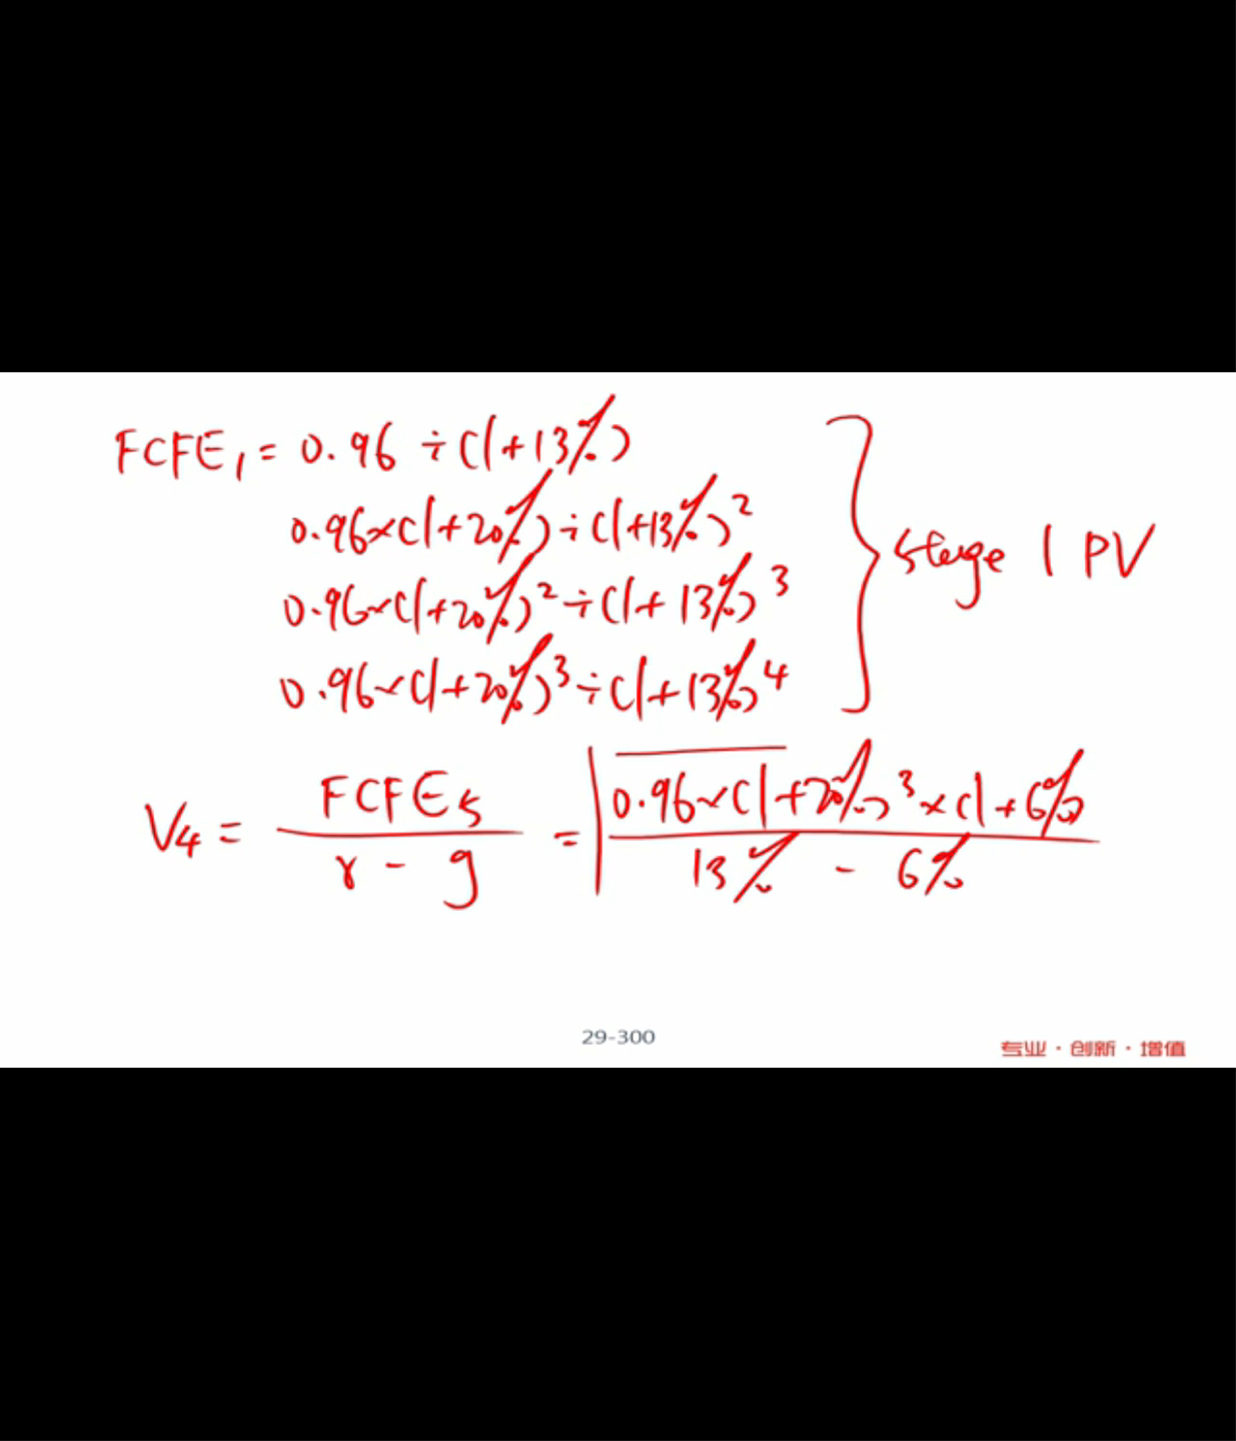 FCFE₁ = 0.96 ÷ (1+13%)
0.96×(1+20%) ÷ (1+13%)²
0.96×(1+20%)² ÷ (1+13%)³
0.96×(1+20%)³ ÷ (1+13%)⁴
stage 1 PV
V₄ = FCFE₅ / r - g = 0.96×(1+20%)³×(1+6%) / 13% - 6%
29-300
专业·创新·增值